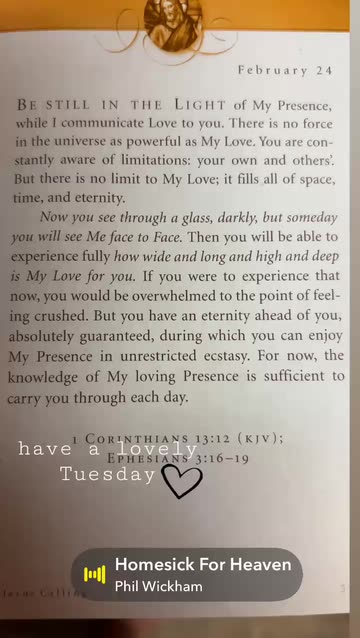 February 24
BE STILL IN THE LIGHT of My Presence,
while I communicate Love to you. There is no force
in the universe as powerful as My Love. You are con-
stantly aware of limitations: your own and others'.
But there is no limit to My Love; it fills all of space,
time, and eternity.
Now you see through a glass, darkly, but someday
you will see Me face to Face. Then you will be able to
experience fully how wide and long and high and deep
is My Love for you. If you were to experience that
now, you would be overwhelmed to the point of feel-
ing crushed. But you have an eternity ahead of you,
absolutely guaranteed, during which you can enjoy
My Presence in unrestricted ecstasy. For now, the
knowledge of My loving Presence is sufficient to
carry you through each day.
1 CORINTHIANS 13:12 (KJV);
EPHESIANS 3:16–19
have a lovely
Tuesday
Homesick For Heaven
Phil Wickham
Jesus Calling